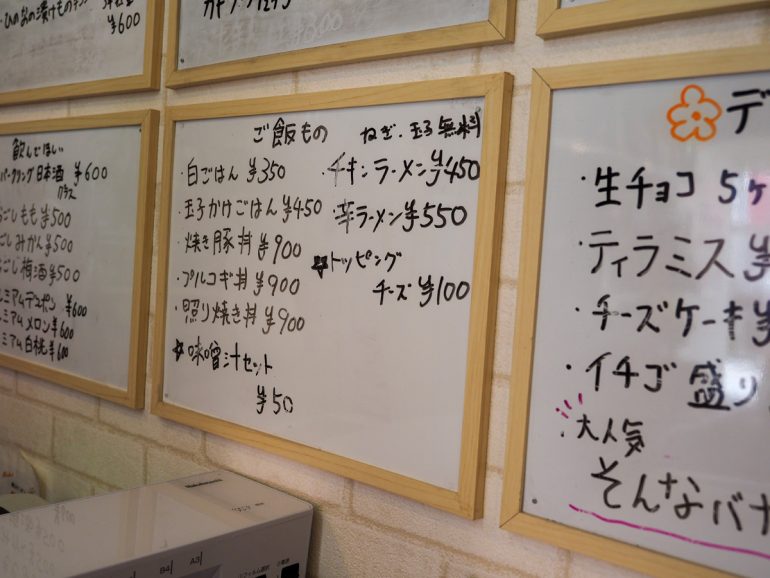 ・ひのおの漬けもの
¥600
飲んでほしい
パークリング日本酒 ¥600
グラス
ごし もも ¥500
ごし みかん ¥500
ごし 梅酒 ¥500
ミアムデコポン ¥600
ミアム メロン ¥600
ミアム 白桃 ¥600
ご飯もの
・白ごはん ¥350
・玉子かけごはん ¥450
・焼き豚丼 ¥900
・プルコギ丼 ¥900
・照り焼き丼 ¥900
☆味噌汁セット
¥50
ねぎ、玉子無料
・チキンラーメン ¥450
・辛ラーメン ¥550
☆トッピング
チーズ ¥100
デ
・生チョコ 5ヶ
・ティラミス ¥
・チーズケーキ ¥
・イチゴ盛り
・大人気
そんなバナ
B4
A3